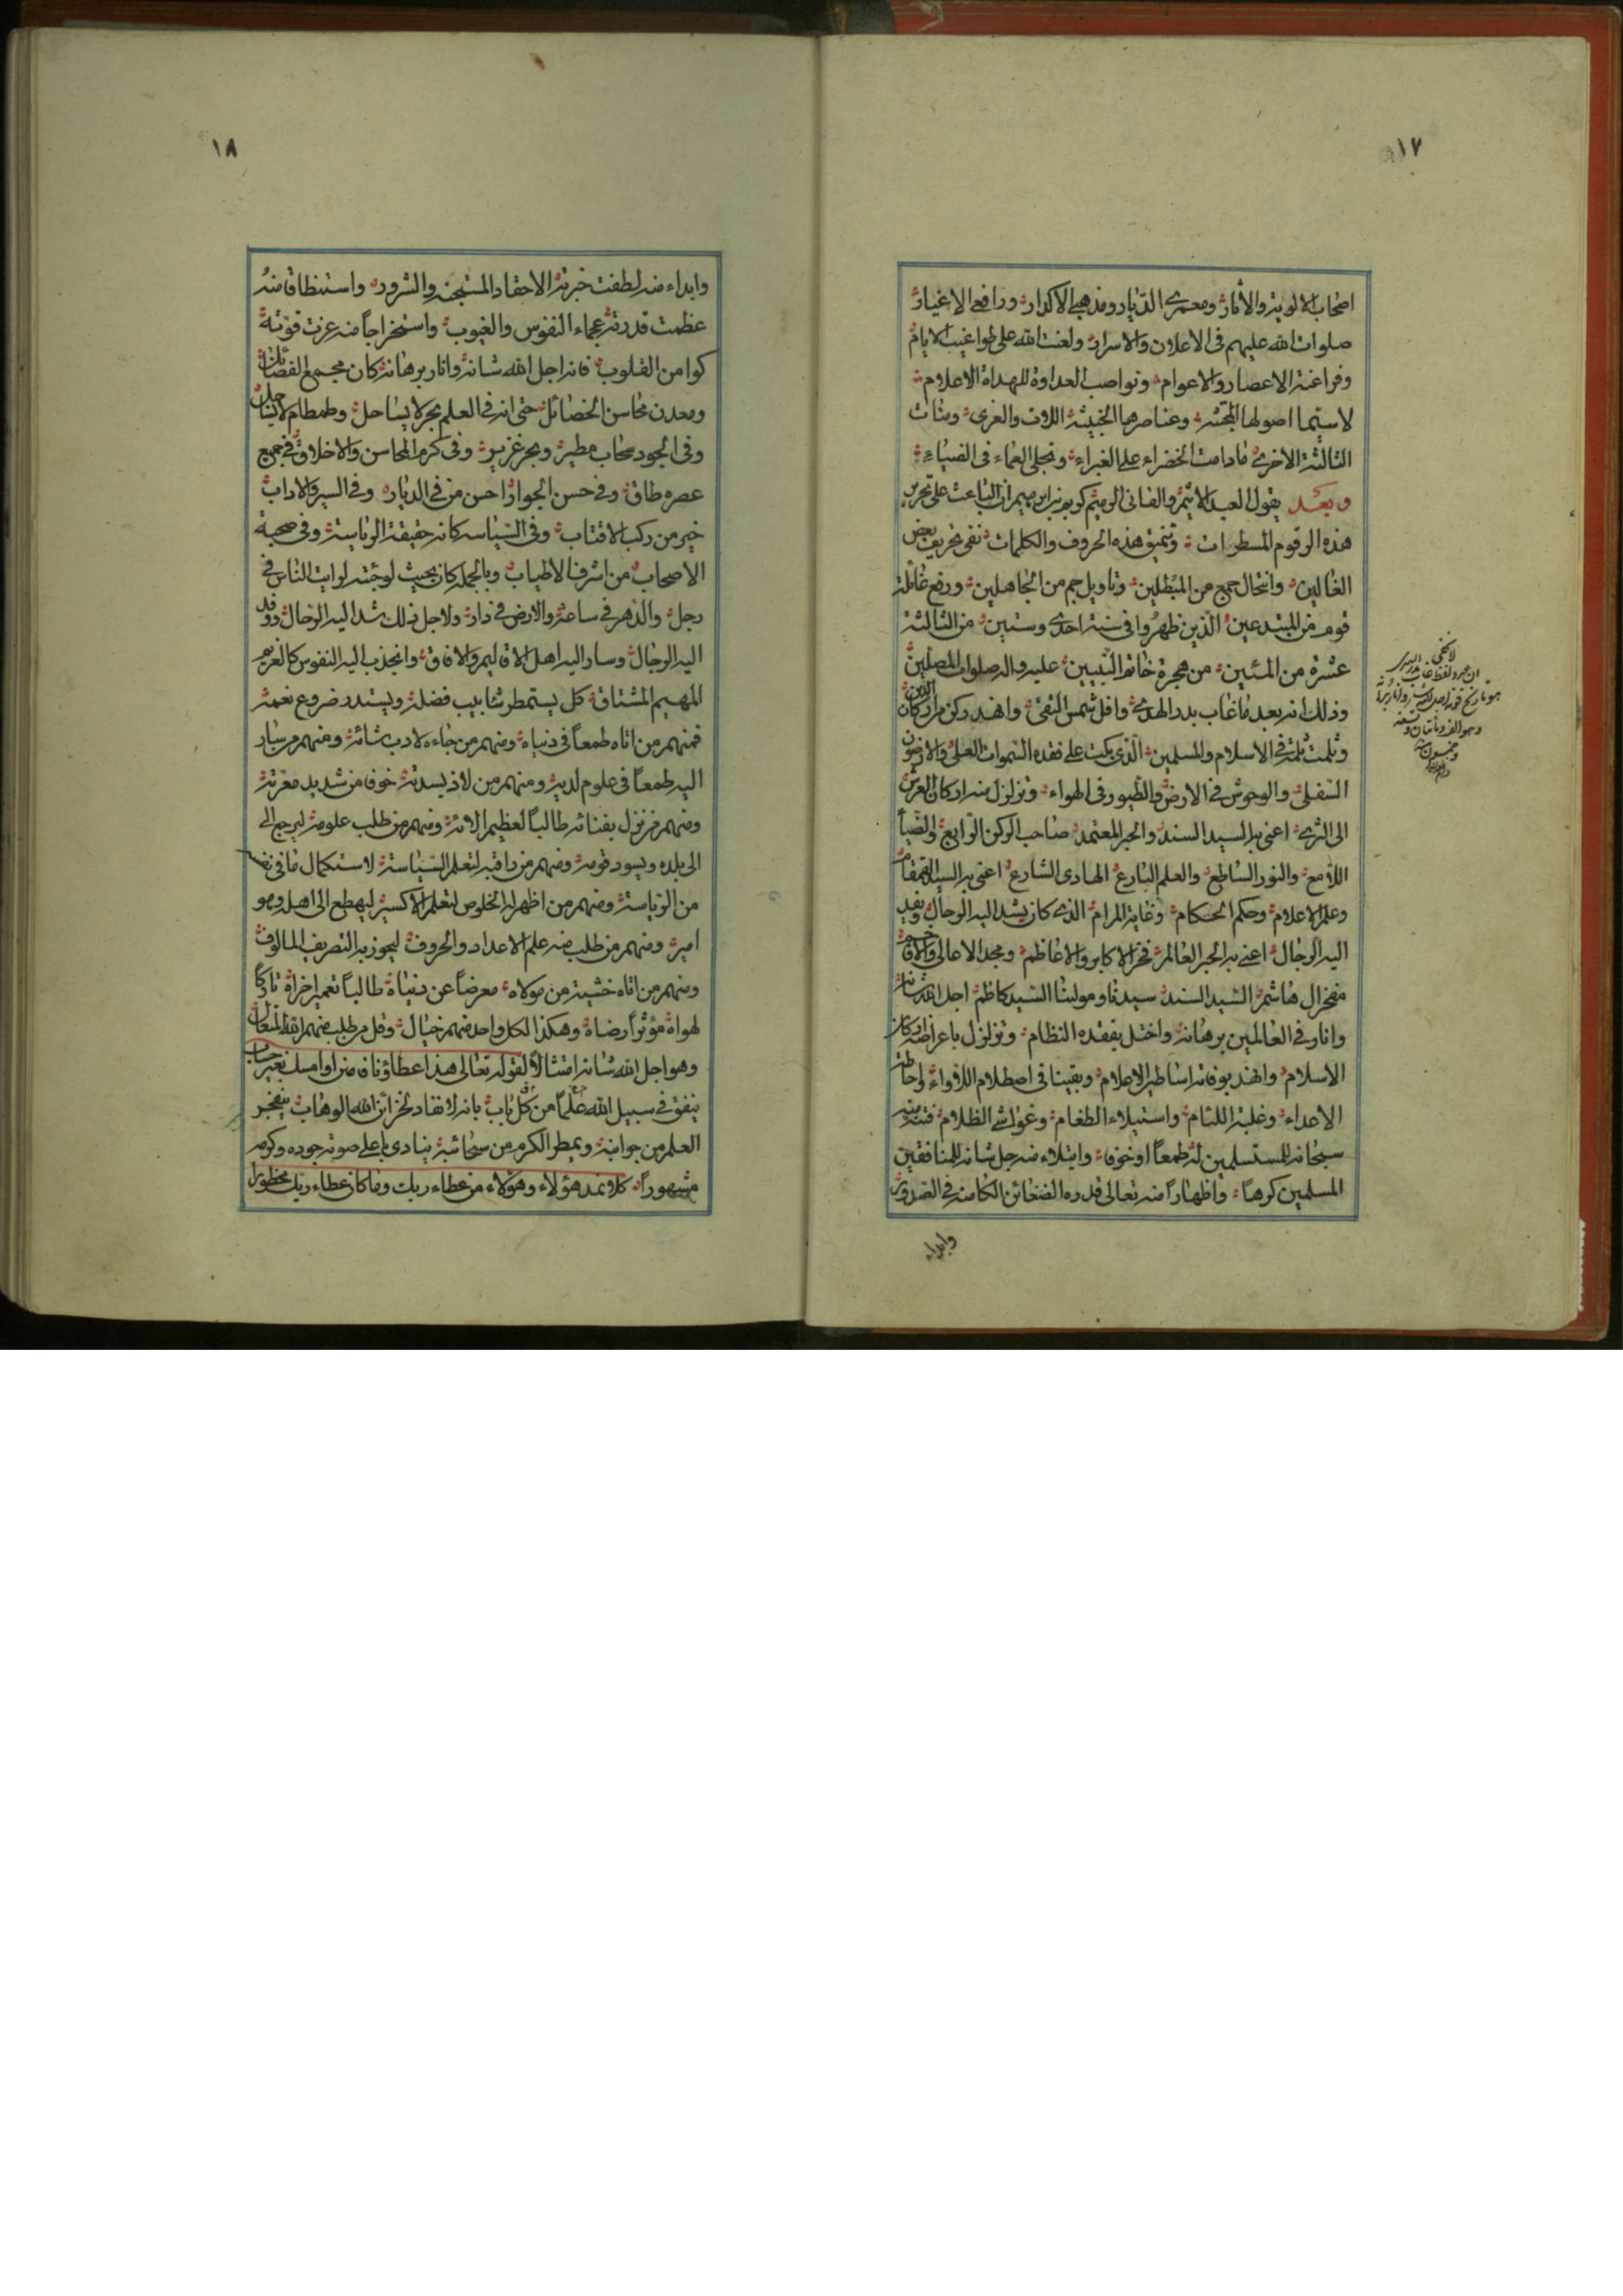 ١٧
اصحاب الالوية والأثار ومعمري الديار ومذهبي الاكدار ورافعي الاغيار
صلوات الله عليهم فى الاعلان والاسرار ولعنت الله على طواغيت الايام
وفراعنة الاعصار والاعوام ونواصب العداوة للهداة الاعلام
لاسيما اصولها المجتثة وعناصرها الخبيثة اللات والعزى ومنات
الثالثة الاخرى مادامت الخضراء على الغبراء وتجلى العماء فى الضياء
وبعد يقول العبد الاثيم والفانى الرميم كريم بن ابرهيم ان الباعث على تحرير
هذه الرقوم المسطورات وتنميق هذه الحروف والكلمات نفى تحريف بعض
الغالين وانتحال جمع من المبطلين وتاويل جم من الجاهلين ورفع غائلة
قوم من المبتدعين الذين ظهروا فى سنة احدى وستين من الثالثة
عشرة من المئين من هجرة خاتم النبيين عليه واله صلوات المصلين
وذلك انه بعد ماغاب بدر الهدى وافل شمس التقى وانهد ركن من اركان الدين
وثلمت ثلمة فى الاسلام والمسلمين الذى بكت على فقده السموات العلى والارضون
السفلى والوحوش فى الارض والطيور فى الهواء وتزلزل منه اركان العرش
الى الثرى اعنى به السيد السند والحبر المعتمد صاحب الركن الرابع والضياء
اللامع والنور الساطع والعلم البارع الهادى الشارع اعنى به السيد القمقام
وعلم الاعلام وحكم الحكام وغاية المرام الذى كان يشد اليه الرحال ويفد
اليه الرجال اعنى به الحبر العالم فخر الاكابر والاعاظم ومجد الاعالى والافاخم
مفخر ال هاشم السيد السند سيدنا ومولينا السيد كاظم اجل الله شانه
وانار فى العالمين برهانه واختل بفقده النظام وتزلزل باعراضه اركان
الاسلام وانهد بوفاته اساطير الاعلام وبقينا فى اصطلام اللاواء واحاطة
الاعداء وغلبة اللئام واستيلاء الطغام وغواشى الظلام فتنة منه
سبحانه للمستسلمين له طمعاً او خوفا وابتلاء منه جل شانه للمنافقين
المسلمين كرها واظهاراً منه تعالى قدره الضغائن الكامنة فى الصدور
وابداء
لا يخفى
ان مجرد لفظ غاب بدر الهدى
هو تاريخ فوته اجل الله شانه وانار برهانه
وهو الف ومأتان وتسعة
وخمسون
١٨
وابداء منه لطفت خبرته الاحقاد المستجنة والشرور واستنطاقا منه
عظمت قدرته عجماء النفوس والغيوب واستخراجاً منه عزت قوته
كوامن القلوب فانه اجل الله شانه وانار برهانه كان مجمع الفضائل
ومعدن محاسن الخصائل حتى انه فى العلم بحر لا يساحل وطمطام لا يساجل
وفى الجود سحاب مطير وبحر غزير وفى كرم المحاسن والاخلاق فى جميع
عصره طاق وفى حسن الجوار احسن من فى الديار وفى السير والاداب
خير من ركب الاقتاب وفى السياسه كانه حقيقة الرياسة وفى صحبة
الاصحاب من اشرف الاطياب وبالجمله كان بحيث لو جئته لرايت الناس فى
رجل والدهر فى ساعة والارض فى دار ولاجل ذلك شد اليه الرحال ووفد
اليه الرجال وسار اليه اهل الاقاليم والافاق وانجذب اليه النفوس كالغريم
المهيم المشتاق كل يستمطر شابيب فضله ويستدر ضروع نعمه
فمنهم من اتاه طمعاً فى دنياه ومنهم من جاءه لاداب شانه ومنهم من سار
اليه طمعاً فى علوم لديه ومنهم من لاذ بسدته خوفا من شديد معرته
ومنهم من نزل بفنائه طالباً لعظيم الائه ومنهم من طلب علومه ليرجع الى
الى بلده ويسود قومه ومنهم من راقبه لتعلم السياسة لاستكمال مافى نفسه
من الرياسة ومنهم من اظهر له الخلوص لتعلم الاكسير ليهطع الى اهله وهو
امير ومنهم من طلب منه علم الاعداد والحروف ليحوز به التصريف المالوف
ومنهم من اتاه خشية من مولاه معرضاً عن دنياه طالباً تعمير اخراه تاركاً
لهواه مؤثراً رضاه وهكذا لكل واحد منهم خيال وقل من طلب منهم الله المتعال
وهو اجل الله شانه امتثالاً لقوله تعالى هذا عطاؤنا فامنن او امسك بغير حساب
ينفق فى سبيل الله علماً من كل باب بانه لا نفاد لخزائن الله الوهاب ينفجر
العلم من جوانبه ويمطر الكرم من سحائبه ينادى باعلى صوته جوده وكرمه
مشهوراً كلا نمد هؤلاء وهؤلاء من عطاء ربك وماكان عطاء ربك محظورا